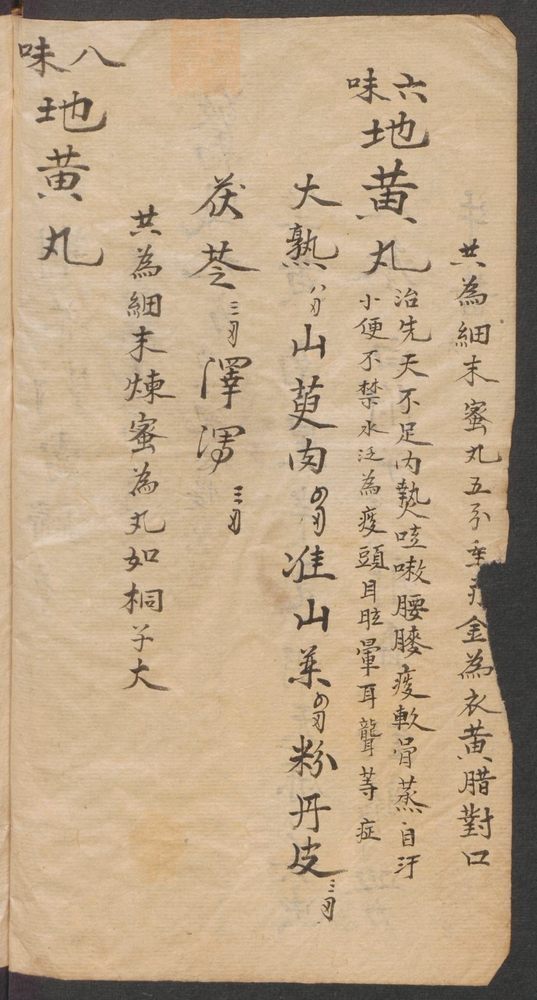 共為細末蜜丸五分重 金為衣黄腊對口
六味地黄丸
治先天不足内𫝑咳嗽腰膝痠軟骨蒸自汗
小便不禁水泛為痰頭目眩暈耳聾等症
大熟 山萸肉 准山薬 粉丹皮三
茯苓三 澤瀉三
共為細末煉蜜為丸如桐子大
八味地黄丸